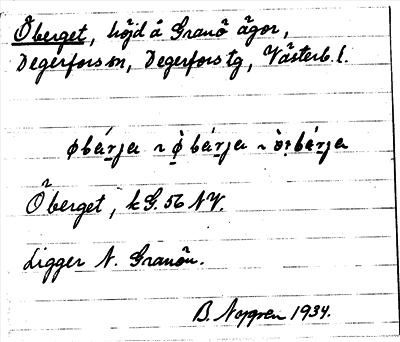 Öberget, höjd å Granö ägor,
Degerfors sn, Degerfors tg, Västerb. l.
øbárja ~ ø̀bárja ~
Öberget, k G. 56 NV.
Ligger N. Granön.
B. Nygren 1934.